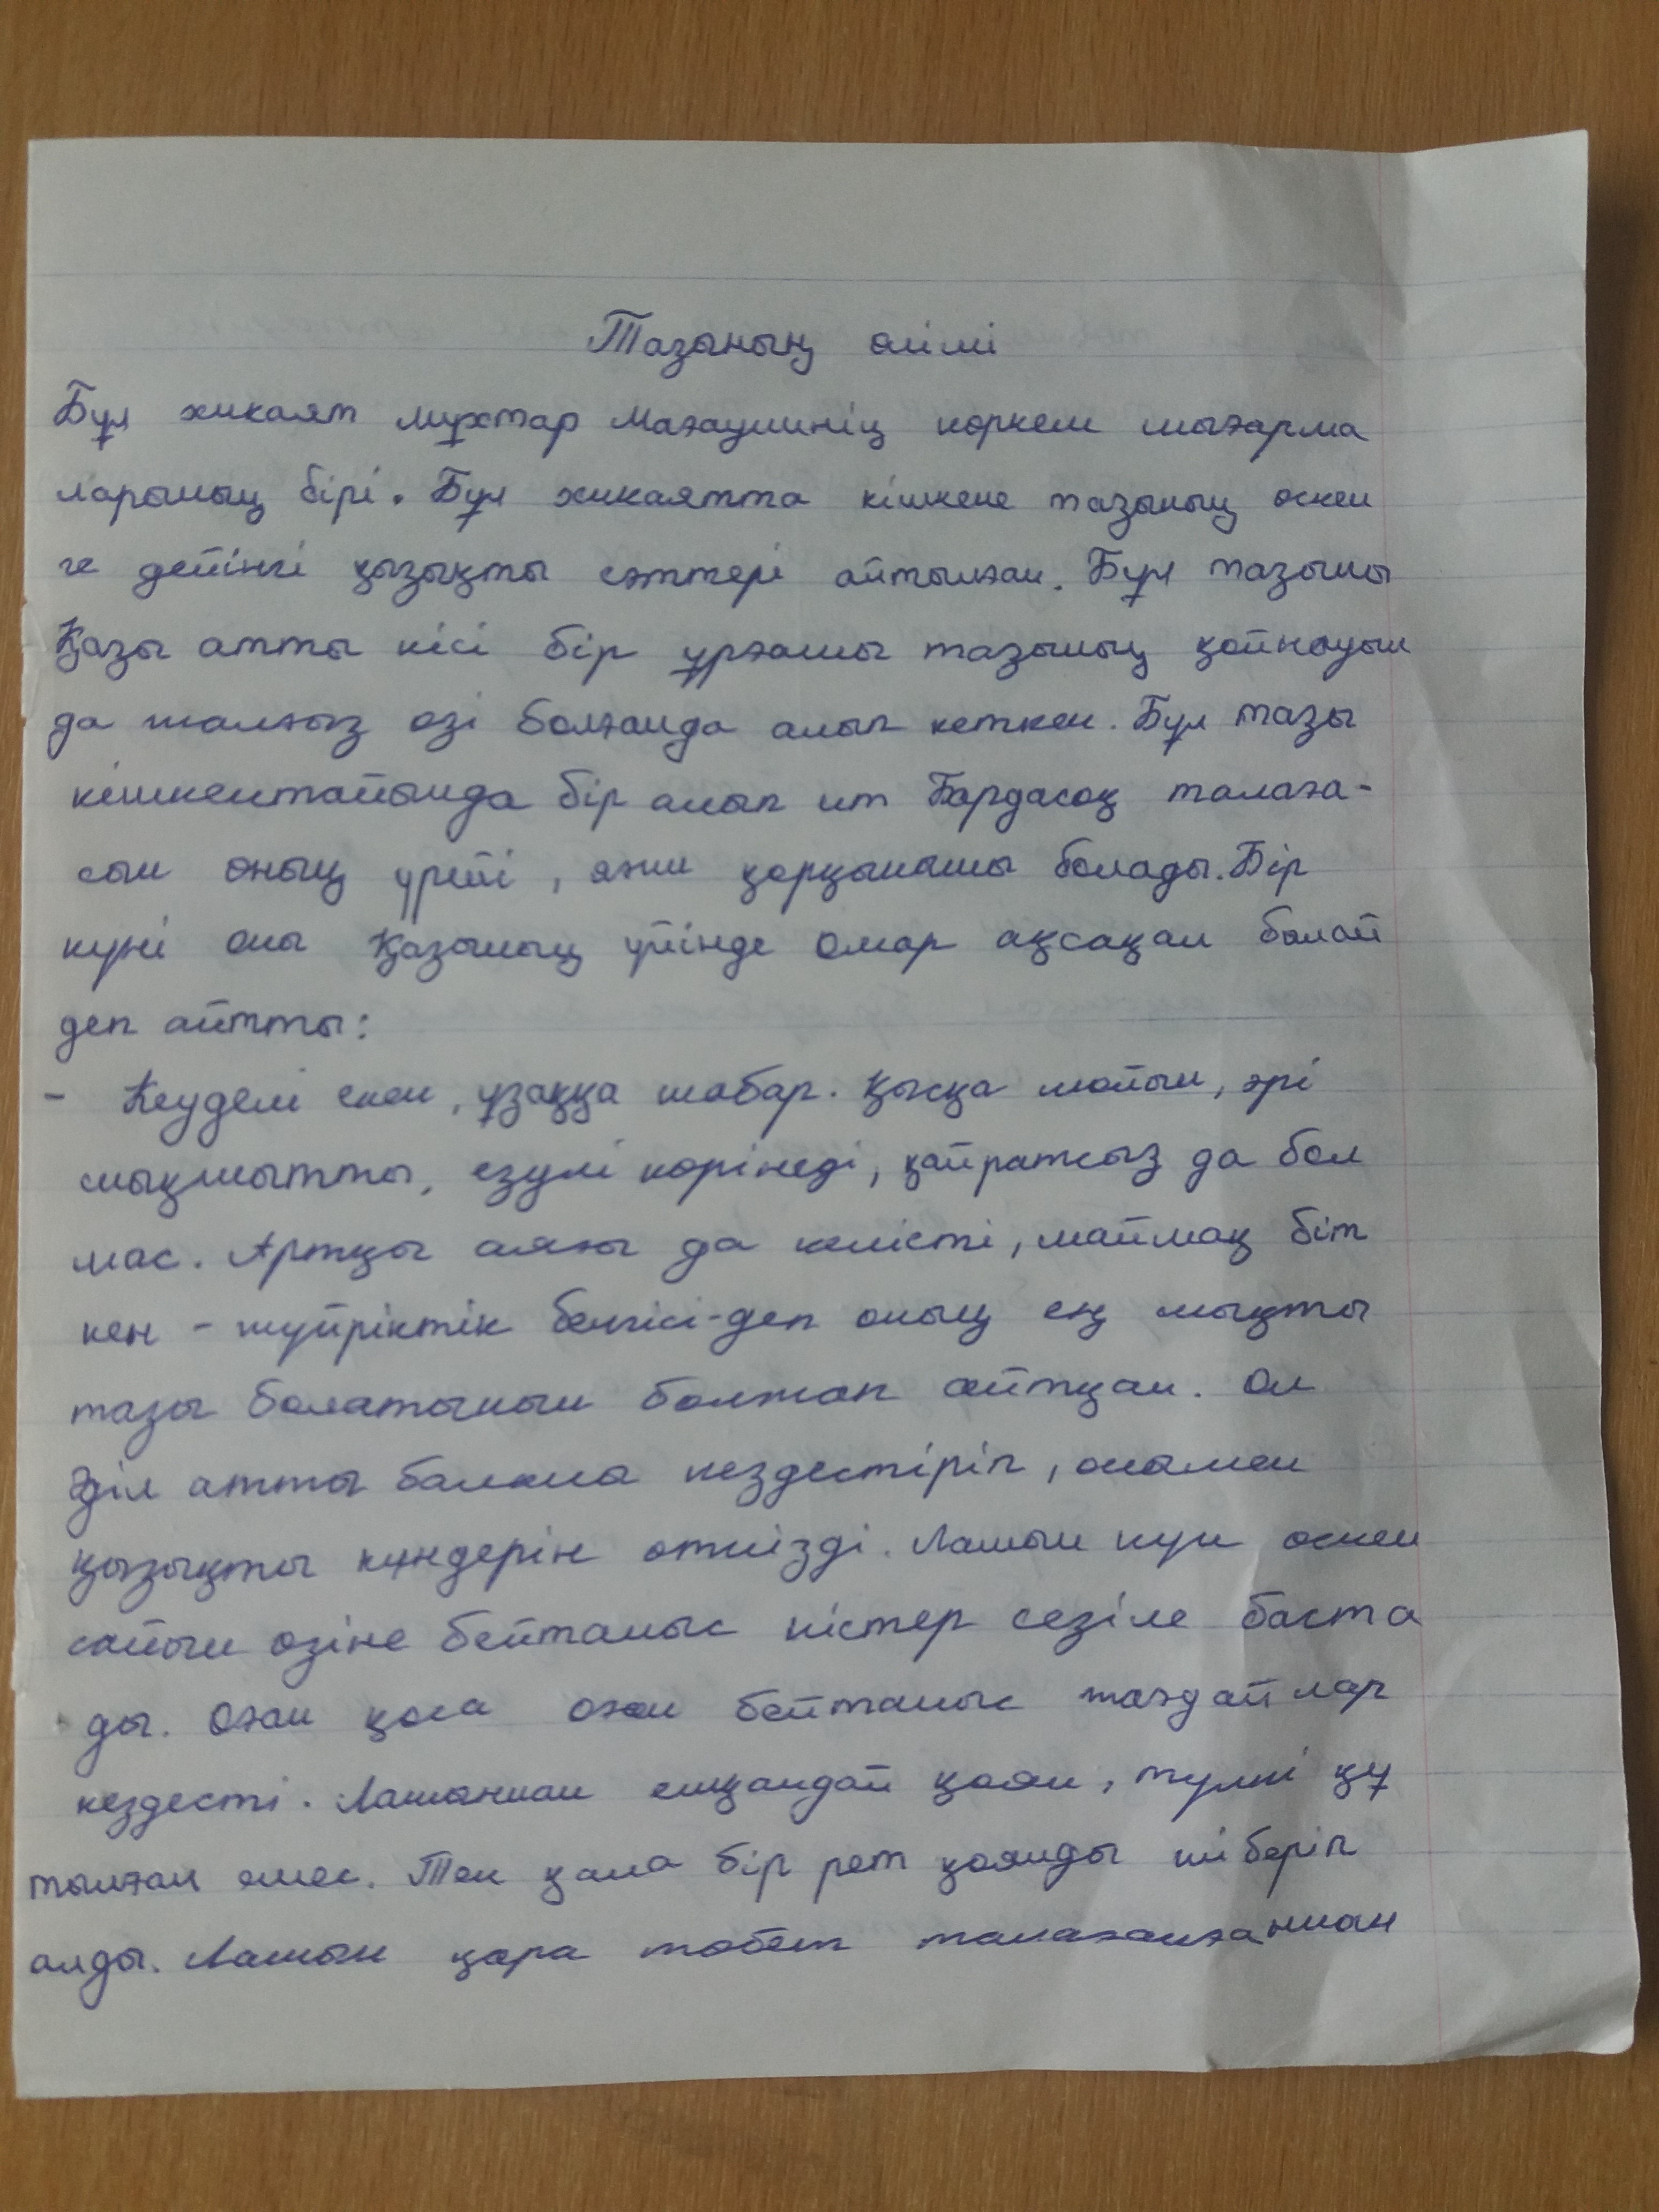 Тазының өлімі
Бұл хикаят Мұхтар Мағауиннің көркем шығарма
ларының бірі. Бұл хикаятта кішкене тазының өскен
ге дейінгі қызықты сәттері айтылған. Бұл тазыны
Қазы атты кісі бір ұрғашы тазының қойнауын
да жалғыз өзі болғанда алып кеткен. Бұл тазы
кішкентайында бір алып ит Бардасоқ талаға-
сын оның үрейі, яғни қорқынышы болады. Бір
күні оны Қазының үйінде Омар ақсақал былай
деп айтты:
- Кеуделі екен, ұзаққа шабар. Қысқа мойын, әрі
шықшытты, езулі көрінеді, қайратсыз да бол
мас. Артқы аяғы да келісті, маймақ біт
кен - жүйріктік белгісі-деп оның ең мықты
тазы болатынын болжап айтқан. Ол
Әділ атты баланы кездестіріп, онымен
қызықты күндерін өткізді. Лашын күн өскен
сайын өзіне бейтаныс иістер сезіле баста
ды. Оған қоса оған бейтаныс жағдайлар
кездесті. Лашыннан ешқандай қоян, түлкі құ
тылған емес. Тек қана бір рет қоянды жіберіп
алды. Лашын қара төбет талағаннан